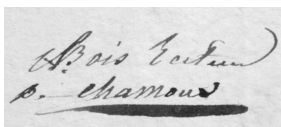 Bois Recteur
p. Chamoux